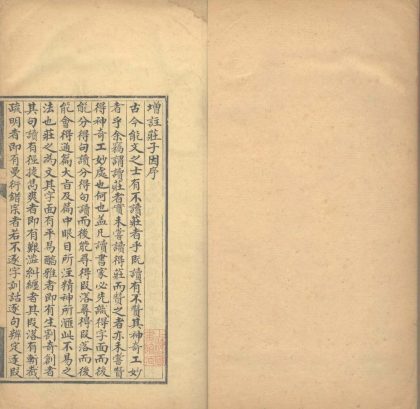 增註莊子因序
古今能文之士有不讀莊者乎既讀有不贊其神奇工妙
者乎余竊謂讀莊者實未嘗讀得莊而贊之者亦未嘗贊
得神奇工妙處也何也蓋凡讀書家必先識得字面而後
能分得句讀分得句讀而後能尋得段落尋得段落而後
能會得通篇大旨及篇中眼目所注精神所滙此不易之
法也莊之為文其字面有平易醞雅者即有生割奇創者
其句讀有徑捷雋爽者即有艱澁糾纏者其段落有斬截
疏明者即有曼衍錯雜者若不逐字訓詁逐句辨定逐段